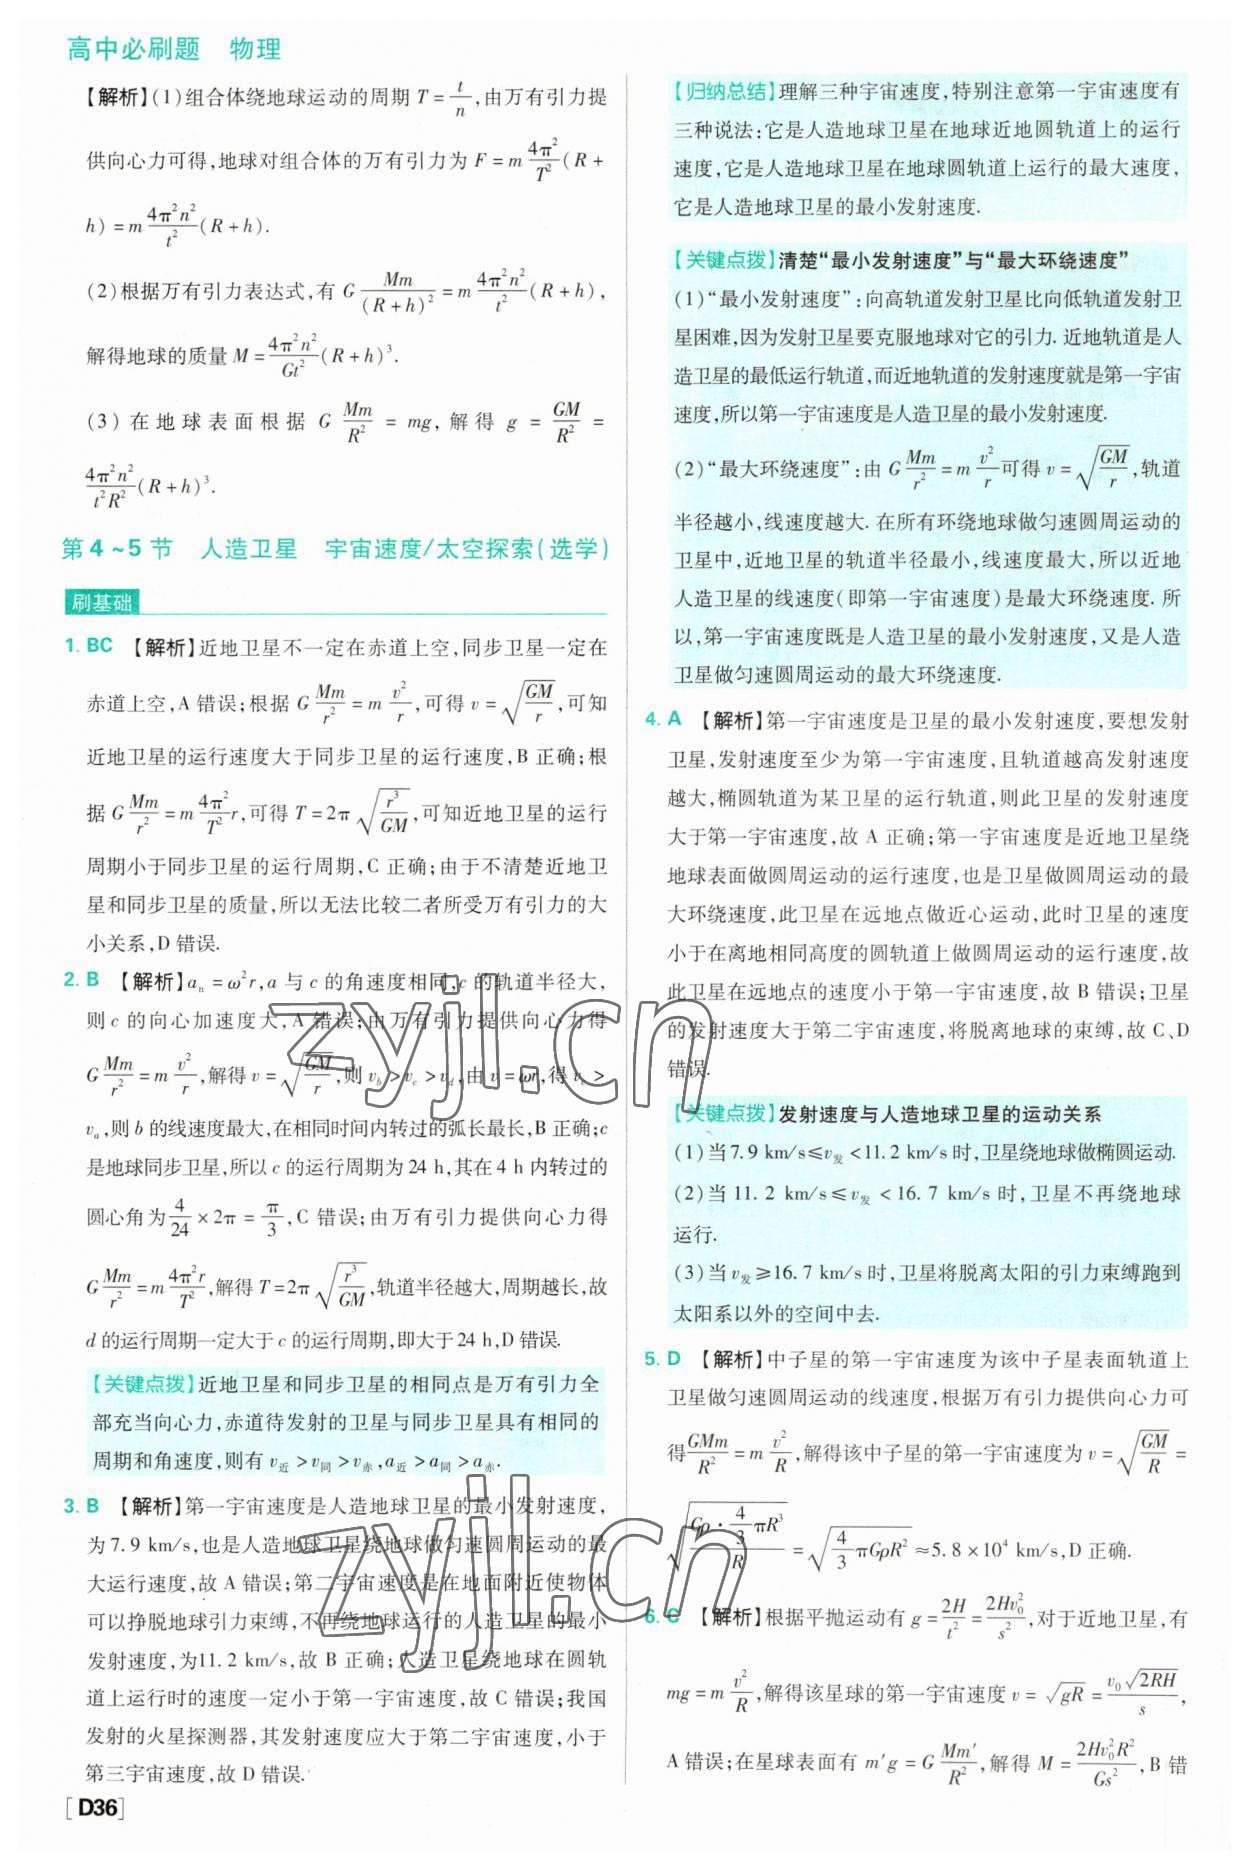 高中必刷题　物理
【解析】(1)组合体绕地球运动的周期 T = t/n ,由万有引力提
供向心力可得,地球对组合体的万有引力为 F = m 4π²/T² (R +
h) = m 4π²n²/t² (R + h).
(2)根据万有引力表达式,有 G Mm/(R + h)² = m 4π²n²/t² (R + h),
解得地球的质量 M = 4π²n²/Gt² (R + h)³.
(3)在地球表面根据 G Mm/R² = mg,解得 g = GM/R² =
4π²n²/t²R² (R + h)³.
第 4 ~ 5 节　人造卫星　宇宙速度/太空探索(选学)
刷基础
1. BC 【解析】近地卫星不一定在赤道上空,同步卫星一定在
赤道上空,A 错误;根据 G Mm/r² = m v²/r ,可得 v = √(GM/r) ,可知
近地卫星的运行速度大于同步卫星的运行速度,B 正确;根
据 G Mm/r² = m 4π²/T² r,可得 T = 2π √(r³/GM) ,可知近地卫星的运行
周期小于同步卫星的运行周期,C 正确;由于不清楚近地卫
星和同步卫星的质量,所以无法比较二者所受万有引力的大
小关系,D 错误.
2. B 【解析】aₙ = ω²r,a 与 c 的角速度相同,c 的轨道半径大,
则 c 的向心加速度大,A 错误;由万有引力提供向心力得
G Mm/r² = m v²/r ,解得 v = √(GM/r) ,则 v_b > v_c > v_d,由 v = ωr,得 v_c >
v_a,则 b 的线速度最大,在相同时间内转过的弧长最长,B 正确;c
是地球同步卫星,所以 c 的运行周期为 24 h,其在 4 h 内转过的
圆心角为 4/24 × 2π = π/3 ,C 错误;由万有引力提供向心力得
G Mm/r² = m 4π²r/T² ,解得 T = 2π √(r³/GM) ,轨道半径越大,周期越长,故
d 的运行周期一定大于 c 的运行周期,即大于 24 h,D 错误.
【关键点拨】近地卫星和同步卫星的相同点是万有引力全
部充当向心力,赤道待发射的卫星与同步卫星具有相同的
周期和角速度,则有 v近 > v同 > v赤,a近 > a同 > a赤.
3. B 【解析】第一宇宙速度是人造地球卫星的最小发射速度,
为 7.9 km/s,也是人造地球卫星绕地球做匀速圆周运动的最
大运行速度,故 A 错误;第二宇宙速度是在地面附近使物体
可以挣脱地球引力束缚,不再绕地球运行的人造卫星的最小
发射速度,为11.2 km/s,故 B 正确;人造卫星绕地球在圆轨
道上运行时的速度一定小于第一宇宙速度,故 C 错误;我国
发射的火星探测器,其发射速度应大于第二宇宙速度,小于
第三宇宙速度,故 D 错误.
[D36]
【归纳总结】理解三种宇宙速度,特别注意第一宇宙速度有
三种说法:它是人造地球卫星在地球近地圆轨道上的运行
速度,它是人造地球卫星在地球圆轨道上运行的最大速度,
它是人造地球卫星的最小发射速度.
【关键点拨】清楚“最小发射速度”与“最大环绕速度”
(1)“最小发射速度”:向高轨道发射卫星比向低轨道发射卫
星困难,因为发射卫星要克服地球对它的引力. 近地轨道是人
造卫星的最低运行轨道,而近地轨道的发射速度就是第一宇宙
速度,所以第一宇宙速度是人造卫星的最小发射速度.
(2)“最大环绕速度”:由 G Mm/r² = m v²/r 可得 v = √(GM/r) ,轨道
半径越小,线速度越大. 在所有环绕地球做匀速圆周运动的
卫星中,近地卫星的轨道半径最小,线速度最大,所以近地
人造卫星的线速度(即第一宇宙速度)是最大环绕速度. 所
以,第一宇宙速度既是人造卫星的最小发射速度,又是人造
卫星做匀速圆周运动的最大环绕速度.
4. A 【解析】第一宇宙速度是卫星的最小发射速度,要想发射
卫星,发射速度至少为第一宇宙速度,且轨道越高发射速度
越大,椭圆轨道为某卫星的运行轨道,则此卫星的发射速度
大于第一宇宙速度,故 A 正确;第一宇宙速度是近地卫星绕
地球表面做圆周运动的运行速度,也是卫星做圆周运动的最
大环绕速度,此卫星在远地点做近心运动,此时卫星的速度
小于在离地相同高度的圆轨道上做圆周运动的运行速度,故
此卫星在远地点的速度小于第一宇宙速度,故 B 错误;卫星
的发射速度大于第二宇宙速度,将脱离地球的束缚,故 C、D
错误.
【关键点拨】发射速度与人造地球卫星的运动关系
(1)当7.9 km/s≤v发 <11.2 km/s 时,卫星绕地球做椭圆运动.
(2)当 11.2 km/s≤v发 < 16.7 km/s 时,卫星不再绕地球
运行.
(3)当 v发 ≥16.7 km/s 时,卫星将脱离太阳的引力束缚跑到
太阳系以外的空间中去.
5. D 【解析】中子星的第一宇宙速度为该中子星表面轨道上
卫星做匀速圆周运动的线速度,根据万有引力提供向心力可
得 GMm/R² = m v²/R ,解得该中子星的第一宇宙速度为 v = √(GM/R) =
√(Gρ · 4/3 πR³/R) = √(4/3 πGρR²) ≈5.8 × 10⁴ km/s,D 正确.
6. C 【解析】根据平抛运动有 g = 2H/t² = 2Hv₀²/s² ,对于近地卫星,有
mg = m v²/R ,解得该星球的第一宇宙速度 v = √(gR) = v₀√(2RH)/s ,
A 错误;在星球表面有 m′g = G Mm′/R² ,解得 M = 2Hv₀²R²/Gs² ,B 错
zyjl.cn
zyjl.cn